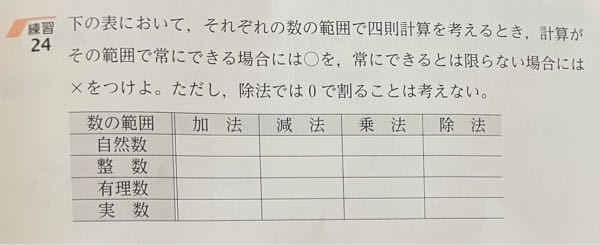 練習
24
下の表において，それぞれの数の範囲で四則計算を考えるとき，計算が
その範囲で常にできる場合には○を，常にできるとは限らない場合には
×をつけよ。ただし，除法では0で割ることは考えない。
数の範囲 加 法 減 法 乗 法 除 法
自然数
整 数
有理数
実 数